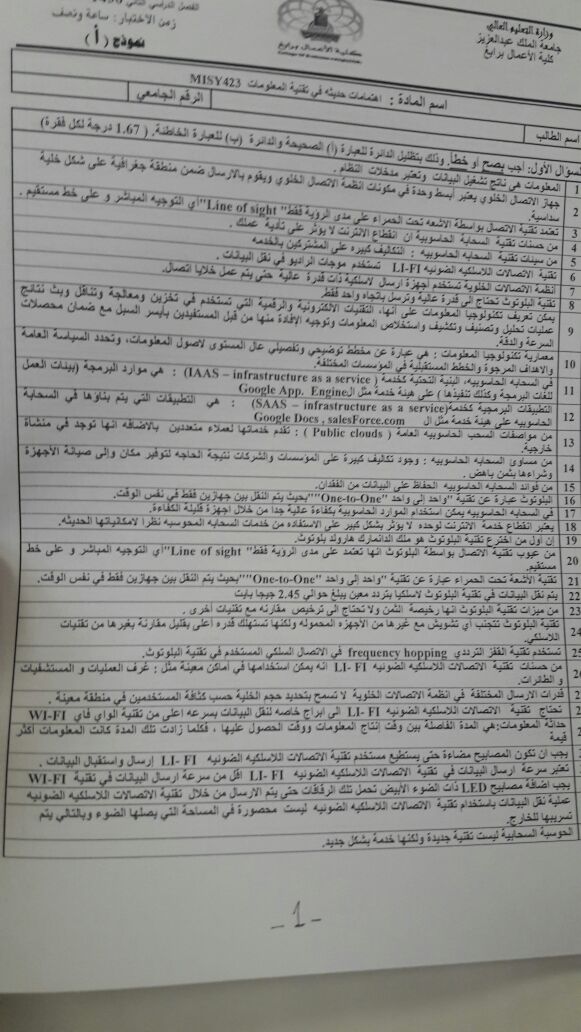 وزارة التعليم العالي
جامعة الملك عبدالعزيز
كلية الأعمال برابغ
كلية الأعمال برابغ
الفصل الدراسي الثاني
زمن الاختبار: ساعة ونصف
نموذج ( أ )
اسم المادة : اهتمامات حديثه في تقنية المعلومات MISY423
اسم الطالب
الرقم الجامعي
السؤال الأول: أجب بصح أو خطأ. وذلك بتظليل الدائرة للعبارة (أ) الصحيحة والدائرة (ب) للعبارة الخاطئة. ( 1.67 درجة لكل فقرة)
1 المعلومات هي ناتج تشغيل البيانات وتعتبر مدخلات النظام .
2 جهاز الاتصال الخلوي يعتبر أبسط وحدة في مكونات انظمة الاتصال الخلوي ويقوم بالارسال ضمن منطقة جغرافية على شكل خلية
سداسية.
3 تعتمد تقنية الاتصال بواسطة الاشعه تحت الحمراء على مدى الرؤية فقط" Line of sight"أي التوجيه المباشر و على خط مستقيم .
4 من حسنات تقنية السحابة الحاسوبية ان انقطاع الانترنت لا يؤثر على تأدية عملك .
5 من سيئات تقنية السحابه الحاسوبيه : التكاليف كبيره على المشتركين بالخدمه
6 تقنية الاتصالات اللاسلكيه الضونيه LI-FI تستخدم موجات الراديو في نقل البيانات .
7 أنظمة الاتصالات الخلوية تستخدم أجهزة ارسال لاسلكية ذات قدرة عالية حتى يتم عمل خلايا اتصال.
8 تقنية البلوتوث تحتاج الى قدرة عالية وترسل باتجاه واحد فقط
9 يمكن تعريف تكنولوجيا المعلومات على أنها، التقنيات الالكترونية والرقمية التي تستخدم في تخزين ومعالجة وتناقل وبث نتائج
عمليات تحليل وتصنيف وتكشيف واستخلاص المعلومات وتوجيه الإفادة منها من قبل المستفيدين بأيسر السبل مع ضمان
السرعة والدقة.
10 معمارية تكنولوجيا المعلومات : هي عبارة عن مخطط توضيحي وتفصيلي عال المستوى لاصول المعلومات، وتحدد السياسة العامة
والاهداف المرجوة والخطط المستقبلية في المؤسسات المختلفة.
11 في السحابه الحاسوبيه، البنية التحتية كخدمة ( IAAS – infrastructure as a service) : هي موارد البرمجة (بيئات العمل
للغات البرمجة وكذلك تنفيذها ) على هيئة خدمة مثل الـ Google App. Engine
12 التطبيقات البرمجية كخدمة (SAAS – infrastructure as a service) : هي التطبيقات التي يتم بناؤها في السحابة
الحاسوبيه على هيئة خدمة مثل ال Google Docs , salesForce.com
13 من مواصفات السحب الحاسوبيه العامة ( Public clouds ) : تقدم خدماتها لعملاء متعددين بالاضافه انها توجد في منشاة
خارجية.
14 من مساوئ السحابه الحاسوبيه : وجود تكاليف كبيرة على المؤسسات والشركات نتيجة الحاجه لتوفير مكان وإلى صيانة الأجهزة
وشراءها بثمن باهض .
15 من فوائد السحابه الحاسوبيه الحفاظ على البيانات من الفقدان.
16 البلوتوث عبارة عن تقنية "واحد إلى واحد "One-to-One""بحيث يتم النقل بين جهازين فقط في نفس الوقت.
17 في السحابه الحاسوبيه يمكن استخدام الموارد الحاسوبية بكفاءة عالية جدا من خلال اجهزة قليلة الكفاءة.
18 يعتبر انقطاع خدمة الانترنت لوحده لا يؤثر بشكل كبير على الاستفاده من خدمات السحابه المحوسبه نظرا لامكانياتها الحديثه.
19 إن أول من اخترع تقنية البلوتوث هو ملك الدانمارك هارولد بلوتوث.
20 من عيوب تقنية الاتصال بواسطة البلوتوث انها تعتمد على مدى الرؤية فقط" Line of sight"أي التوجيه المباشر و على خط
مستقيم.
21 تقنية الأشعة تحت الحمراء عبارة عن تقنية "واحد إلى واحد "One-to-One""بحيث يتم النقل بين جهازين فقط في نفس الوقت.
22 يتم نقل البيانات في تقنية البلوتوث لاسلكيا بتردد معين يبلغ حوالي 2.45 جيجا بايت
23 من ميزات تقنية البلوتوث انها رخيصة الثمن ولا تحتاج الى ترخيص مقارنه مع تقنيات أخرى .
24 تقنية البلوتوث تتجنب أي تشويش مع غيرها من الأجهزه المحموله ولكنها تستهلك قدره أعلى بقليل مقارنة بغيرها من تقنيات
اللاسلكي.
25 تستخدم تقنية القفز الترددي frequency hopping في الاتصال السلكي المستخدم في تقنية البلوتوث.
من حسنات تقنية الاتصالات اللاسلكيه الضونيه LI- FI انه يمكن استخدامها في اماكن معينة مثل : غرف العمليات و المستشفيات
و الطائرات.
قدرات الارسال المختلفة في انظمة الاتصالات الخلوية لا تسمح بتحديد حجم الخلية حسب كثافة المستخدمين في منطقة معينة .
تحتاج تقنية الاتصالات اللاسلكيه الضونيه LI- FI الى ابراج خاصه لنقل البيانات بسرعه اعلى من تقنية الواي فاي WI-FI
حداثة المعلومات:هي المدة الفاصلة بين وقت إنتاج المعلومات ووقت الحصول عليها ، فكلما زادت تلك المدة كانت المعلومات أكثر
قيمة
يجب ان تكون المصابيح مضاءة حتى يستطيع مستخدم تقنية الاتصالات اللاسلكيه الضونيه LI- FI إرسال واستقبال البيانات .
تعتبر سرعة ارسال البيانات في تقنية الاتصالات اللاسلكيه الضونيه LI- FI اقل من سرعة ارسال البيانات في تقنية WI-FI
يجب اضافة مصابيح LED ذات الضوء الأبيض تحمل تلك الرقاقات حتى يتم الارسال من خلال تقنية الاتصالات اللاسلكيه الضونيه
عملية نقل البيانات باستخدام تقنية الاتصالات اللاسلكيه الضونيه ليست محصورة في المساحة التي يصلها الضوء وبالتالي يتم
تسريبها للخارج.
الحوسبة السحابية ليست تقنية جديدة ولكنها خدمة بشكل جديد.
- 1 -